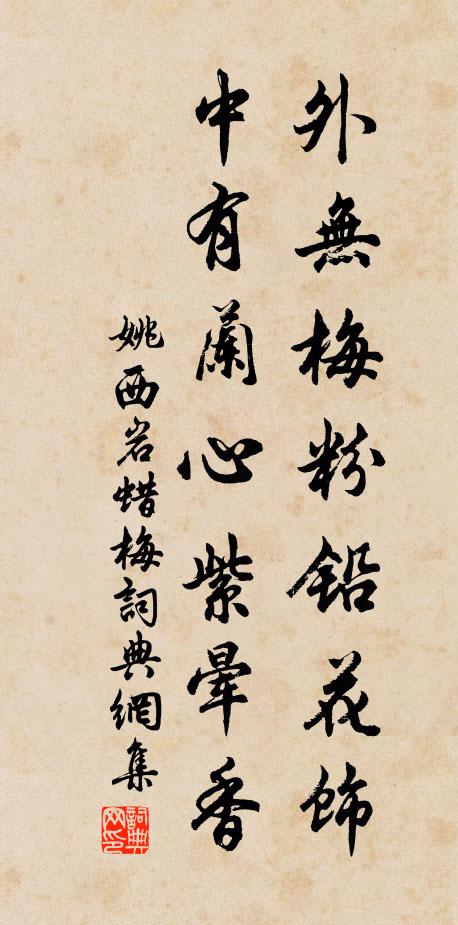 外無梅粉鉛花飾
中有蘭心紫暈香
姚西岩蜡梅詞典網集
詞典網印